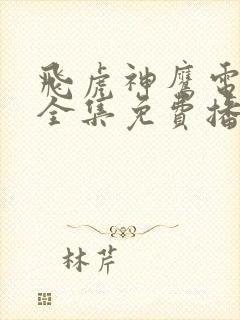 飛虎神鷹電
全集免費播
林芹